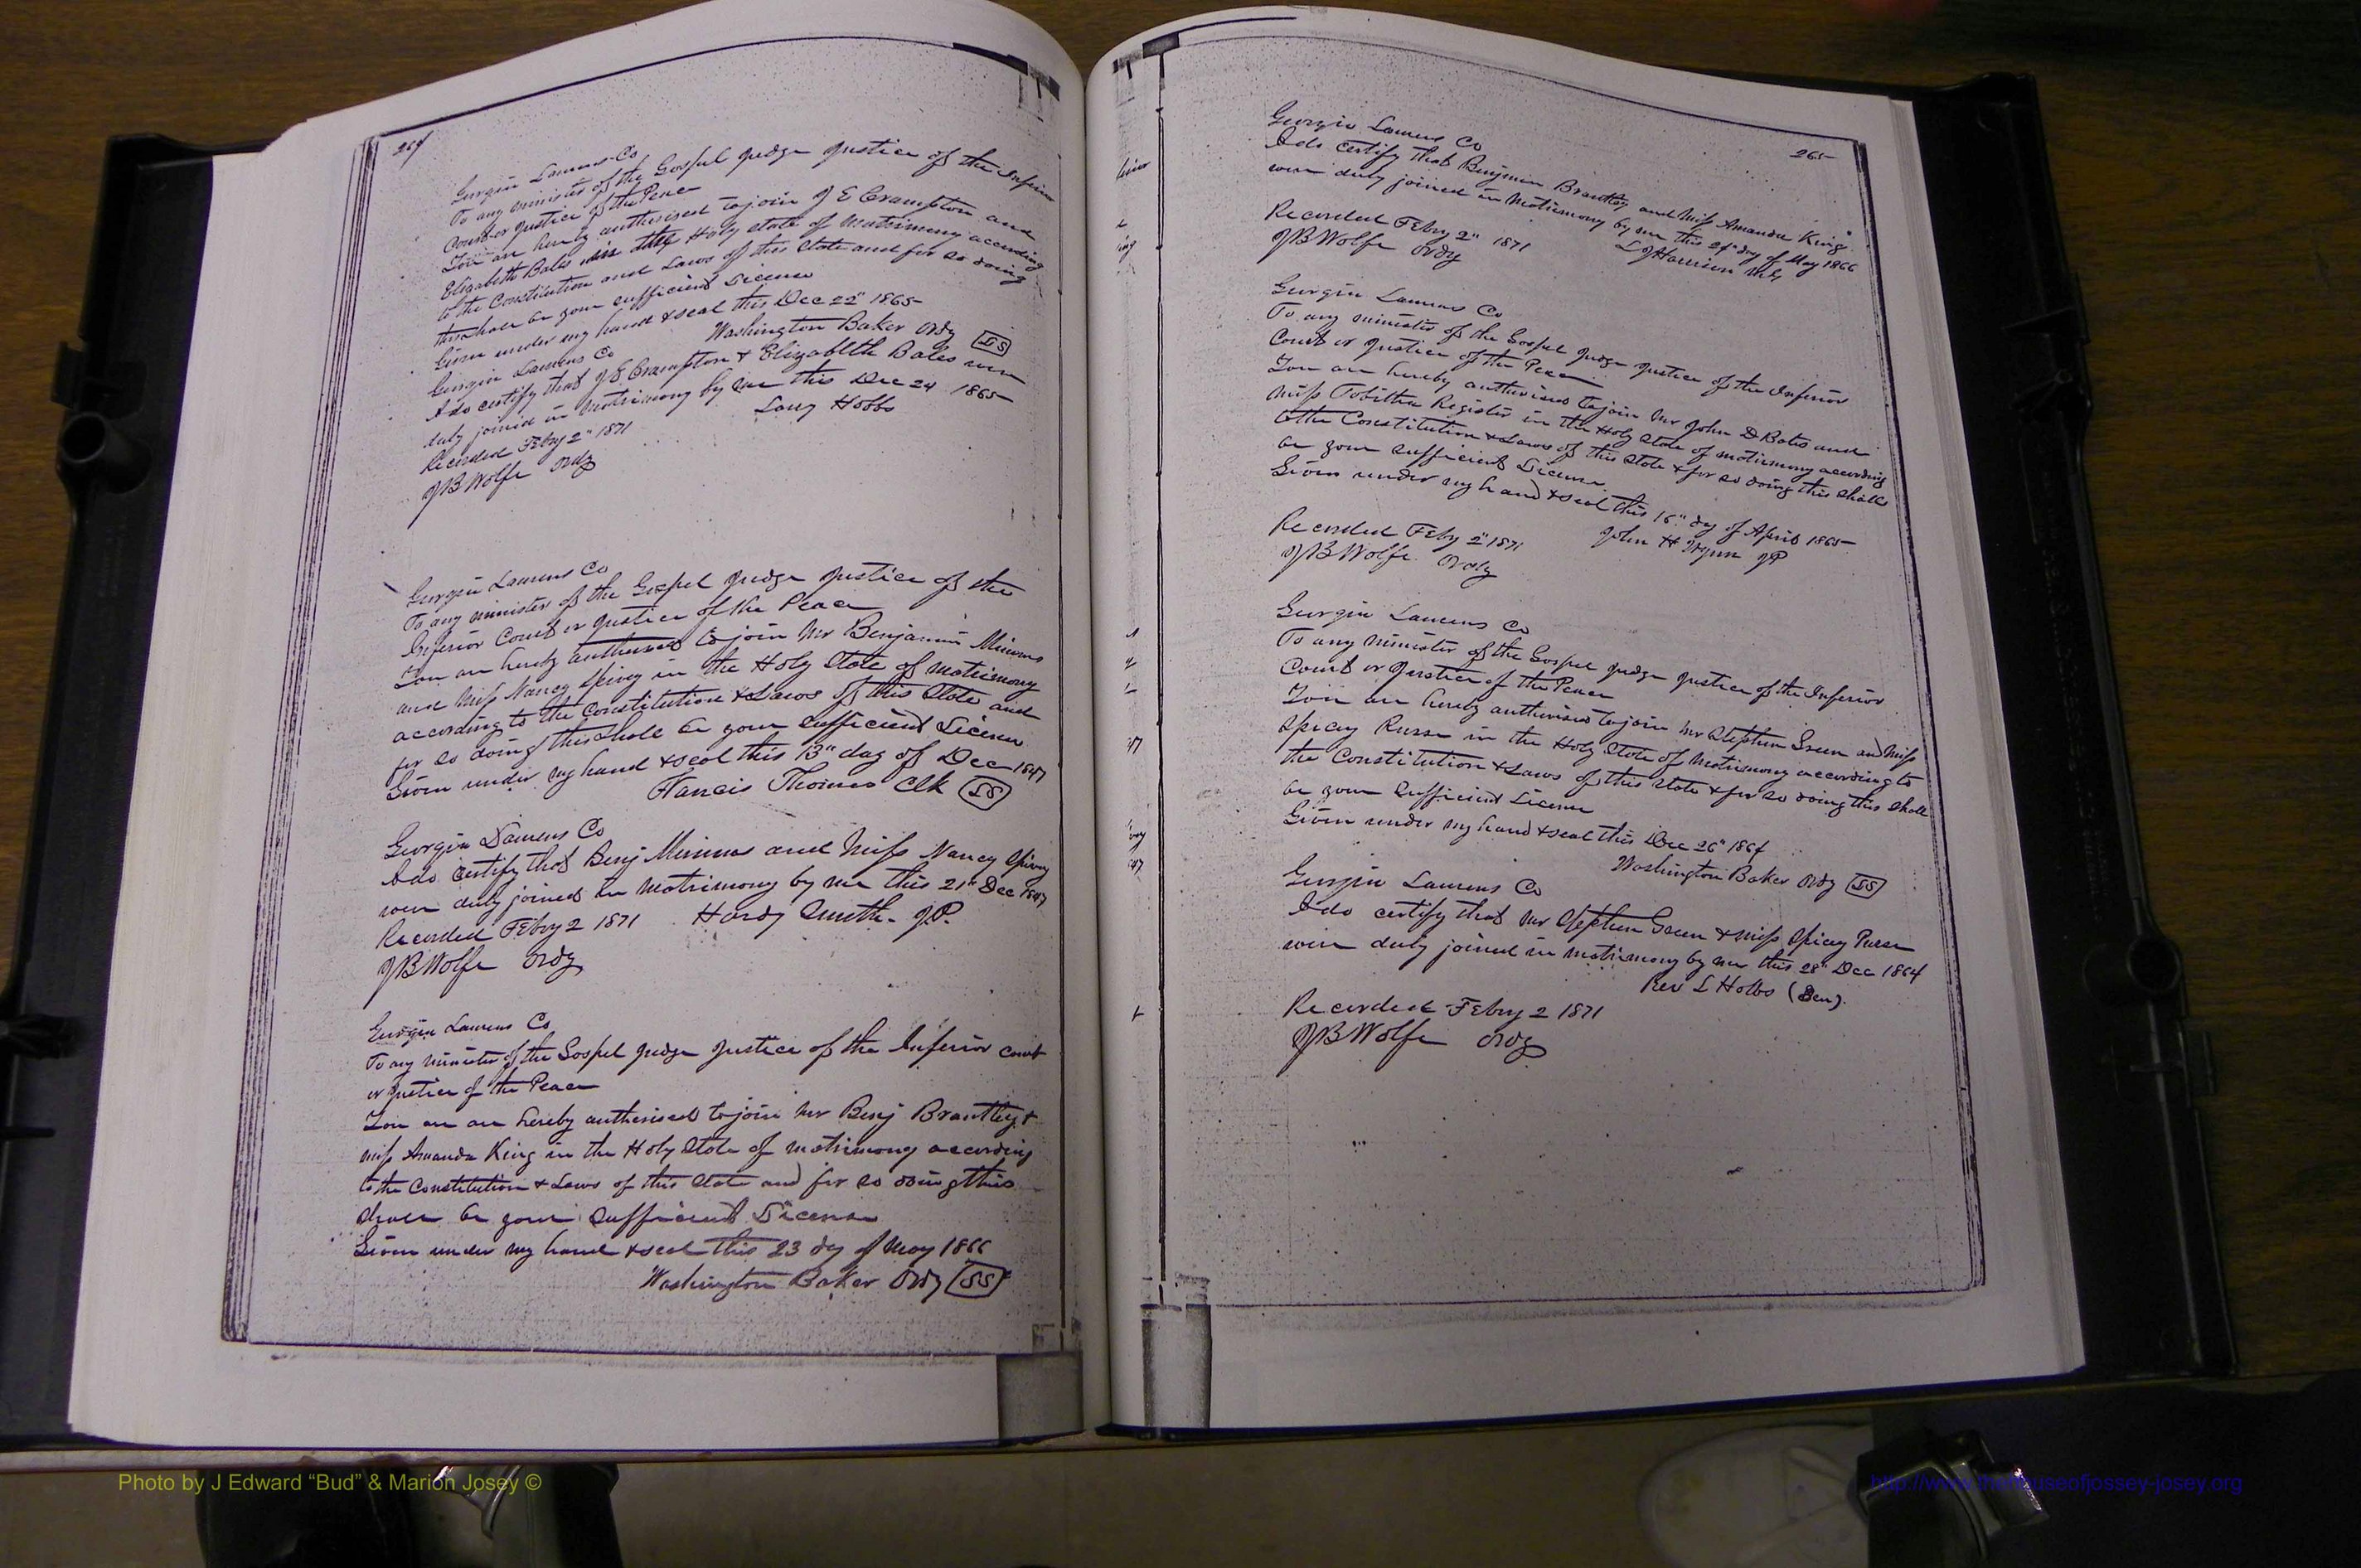 264
Georgia Laurens Co
To any minister of the Gospel Judge Justice of the Inferior
Court or Justice of the Peace
You are hereby authorised to join J E Crampton and
Elizabeth Bales in the Holy state of Matrimony according
to the Constitution and Laws of this State and for so doing
this shall be your sufficient License
Given under my hand & seal this Dec 22" 1865
Washington Baker Ordy LS
Georgia Laurens Co
I do certify that J E Crampton & Elizabeth Bales were
duly joined in Matrimony by me this Dec 24 1865
Larry Hobbs
Recorded Feby 2" 1871
JB Wolfe Ordy
Georgia Laurens Co
To any minister of the Gospel Judge Justice of the
Inferior Court or Justice of the Peace
You are hereby authorised to join Mr Benjamin Mimms
and Miss Nancy Spivey in the Holy State of matrimony
according to the Constitution & Laws of this State and
for so doing this shall be your sufficient License
Given under my hand & seal this 13" day of Dec 1847
Francis Thomas Clk LS
Georgia Laurens Co
I do certify that Benj Mimms and Miss Nancy Spivey
were duly joined in matrimony by me this 21" Dec 1847
Recorded Feby 2 1871 Hardy Smith. J.P.
JB Wolfe Ordy
Georgia Laurens Co
To any minister of the Gospel Judge Justice of the Inferior Court
or Justice of the Peace
You are are hereby authorised to join Mr Benj Brantley &
miss Amanda King in the Holy State of matrimony according
to the Constitution & Laws of this State and for so doing this
shall be your sufficient License
Given under my hand & seal this 23 dy of May 1866
Washington Baker Ordy LS
265
Georgia Laurens Co
I do certify that Benjimin Brantley and Miss Amanda King
were duly joined in Matrimony by me this 24" day of May 1866
Recorded Feby 2" 1871 Harrison MG
JB Wolfe Ordy
Georgia Laurens Co
To any minister of the Gospel Judge Justice of the Inferior
Court or Justice of the Peace
You are hereby authorised to join Mr John D Bates and
Miss Tobitha Register in the Holy State of matrimony according
to the Constitution & Laws of this State & for so doing this shall
be your sufficient License.
Given under my hand & seal this 16" day of April 1865
Recorded Feby 2" 1871 John H JP
JB Wolfe Ordy
Georgia Laurens Co
To any minister of the Gospel Judge Justice of the Inferior
Court or Justice of the Peace
You are hereby authorised to join Mr Stephen Green and Miss
Spicey in the Holy State of Matrimony according to
the Constitution & Laws of this State & for so doing this shall
be your sufficient License
Given under my hand & seal this Dec 26" 1864
Washington Baker Ordy LS
Georgia Laurens Co
I do certify that Mr Stephen Green & miss Spicey
were duly joined in matrimony by me this 28" Dec 1864
Rev L Hobbs (Sen).
Recorded Feby 2 1871
JB Wolfe Ordy
Photo by J Edward “Bud” & Marion Josey ©
http://www.thehouseofjossey-josey.org